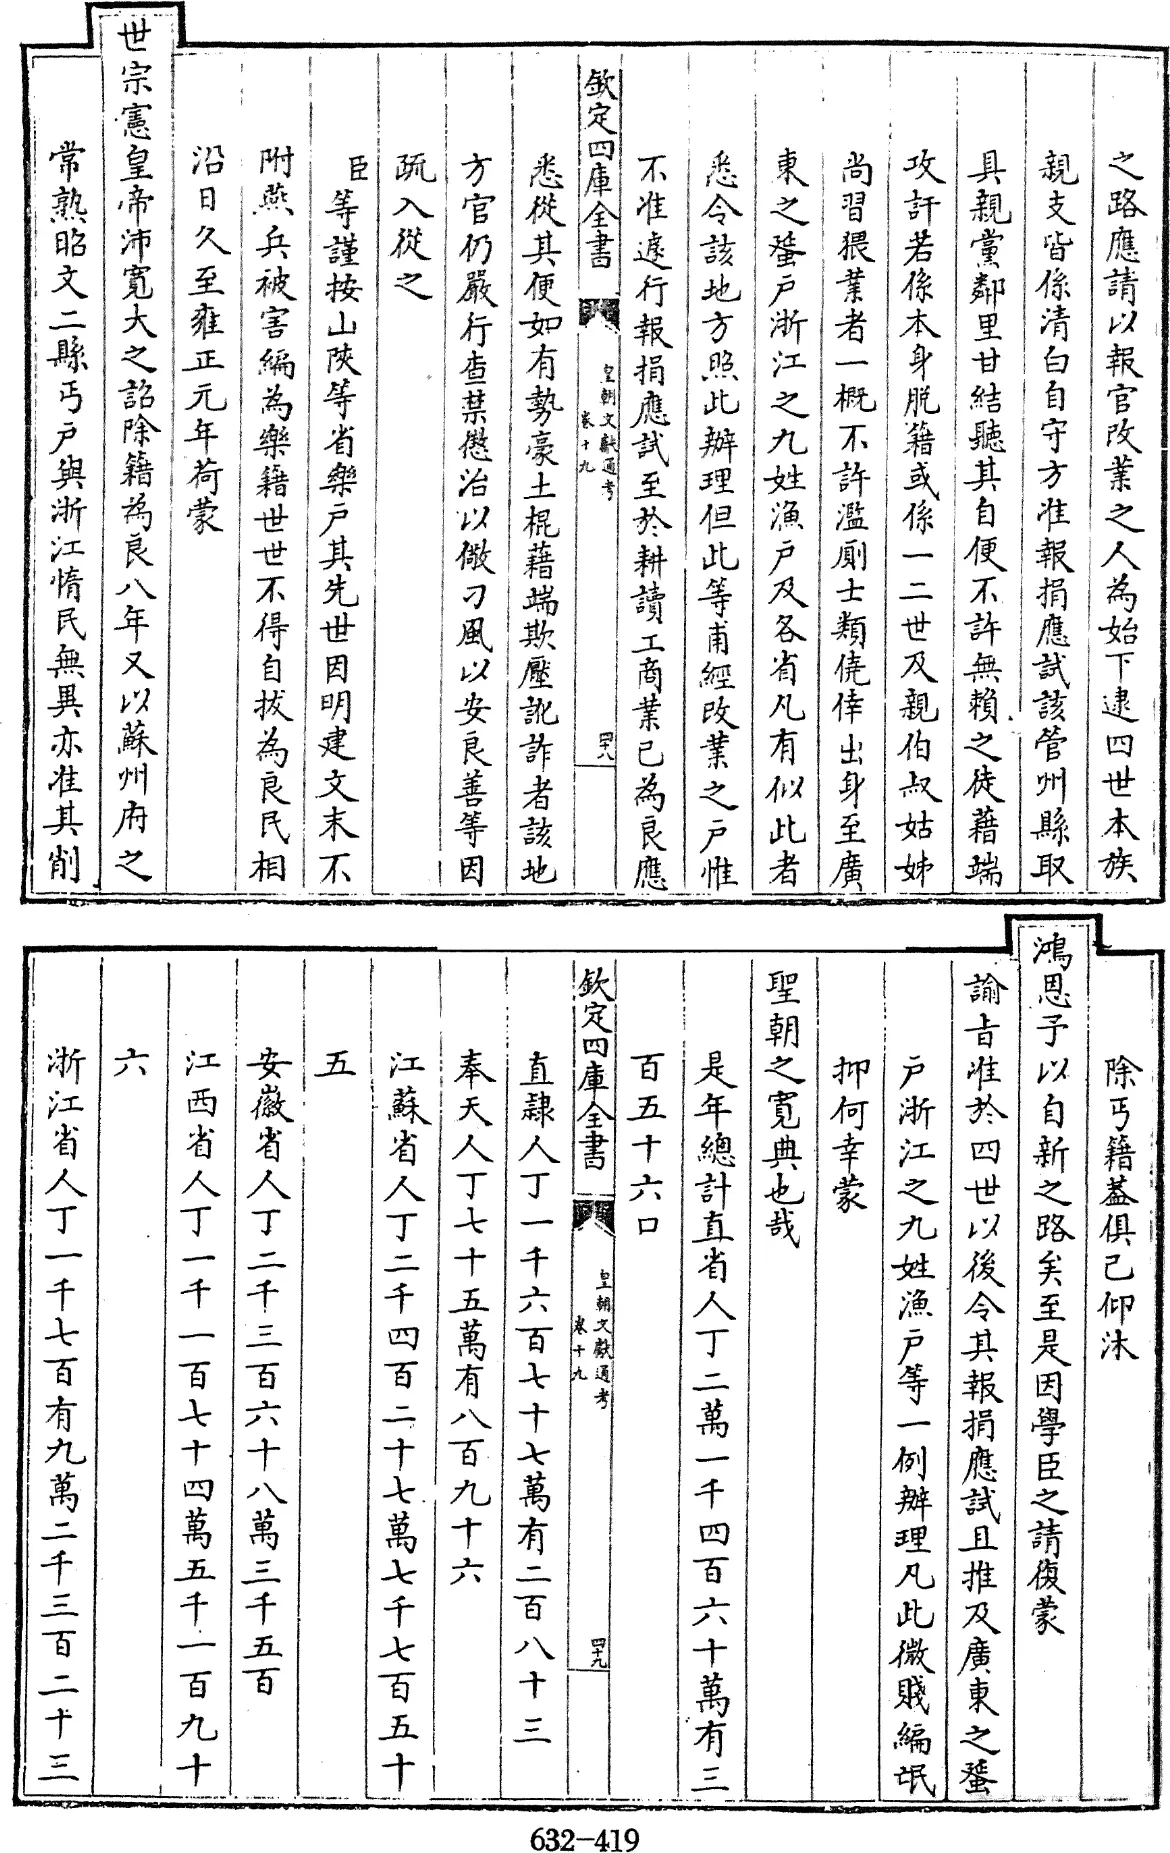 之路應請以報官改業之人為始下逮四世本族
親支皆係清白自守方准報捐應試該管州縣取
具親黨鄰里甘結聽其自便不許無賴之徒藉端
攻訐若係本身脫籍或係一二世及親伯叔姑姊
尚習猥業者一概不許濫廁士類僥倖出身至廣
東之蜑戶浙江之九姓漁戶及各省凡有似此者
悉令該地方照此辦理但此等甫經改業之戶惟
不准遽行報捐應試至於耕讀工商業已為良應
欽定四庫全書
皇朝文獻通考
卷十九
四十八
悉從其便如有勢豪土棍藉端欺壓訛詐者該地
方官仍嚴行查禁懲治以儆刁風以安良善等因
疏入從之
臣等謹按山陝等省樂戶其先世因明建文末不
附燕兵被害編為樂籍世世不得自拔為良民相
沿日久至雍正元年荷蒙
世宗憲皇帝沛寬大之詔除籍為良八年又以蘇州府之
常熟昭文二縣丐戶與浙江惰民無異亦准其削
除丐籍蓋俱已仰沐
鴻恩予以自新之路矣至是因學臣之請復蒙
諭旨准於四世以後令其報捐應試且推及廣東之蜑
戶浙江之九姓漁戶等一例辦理凡此微賤編氓
抑何幸蒙
聖朝之寬典也哉
是年總計直省人丁二萬一千四百六十萬有三
百五十六口
欽定四庫全書
皇朝文獻通考
卷十九
四十九
直隸人丁一千六百七十七萬有二百八十三
奉天人丁七十五萬有八百九十六
江蘇省人丁二千四百二十七萬七千七百五十
五
安徽省人丁二千三百六十八萬三千五百
江西省人丁一千一百七十四萬五千一百九十
六
浙江省人丁一千七百有九萬二千三百二十三
632-419